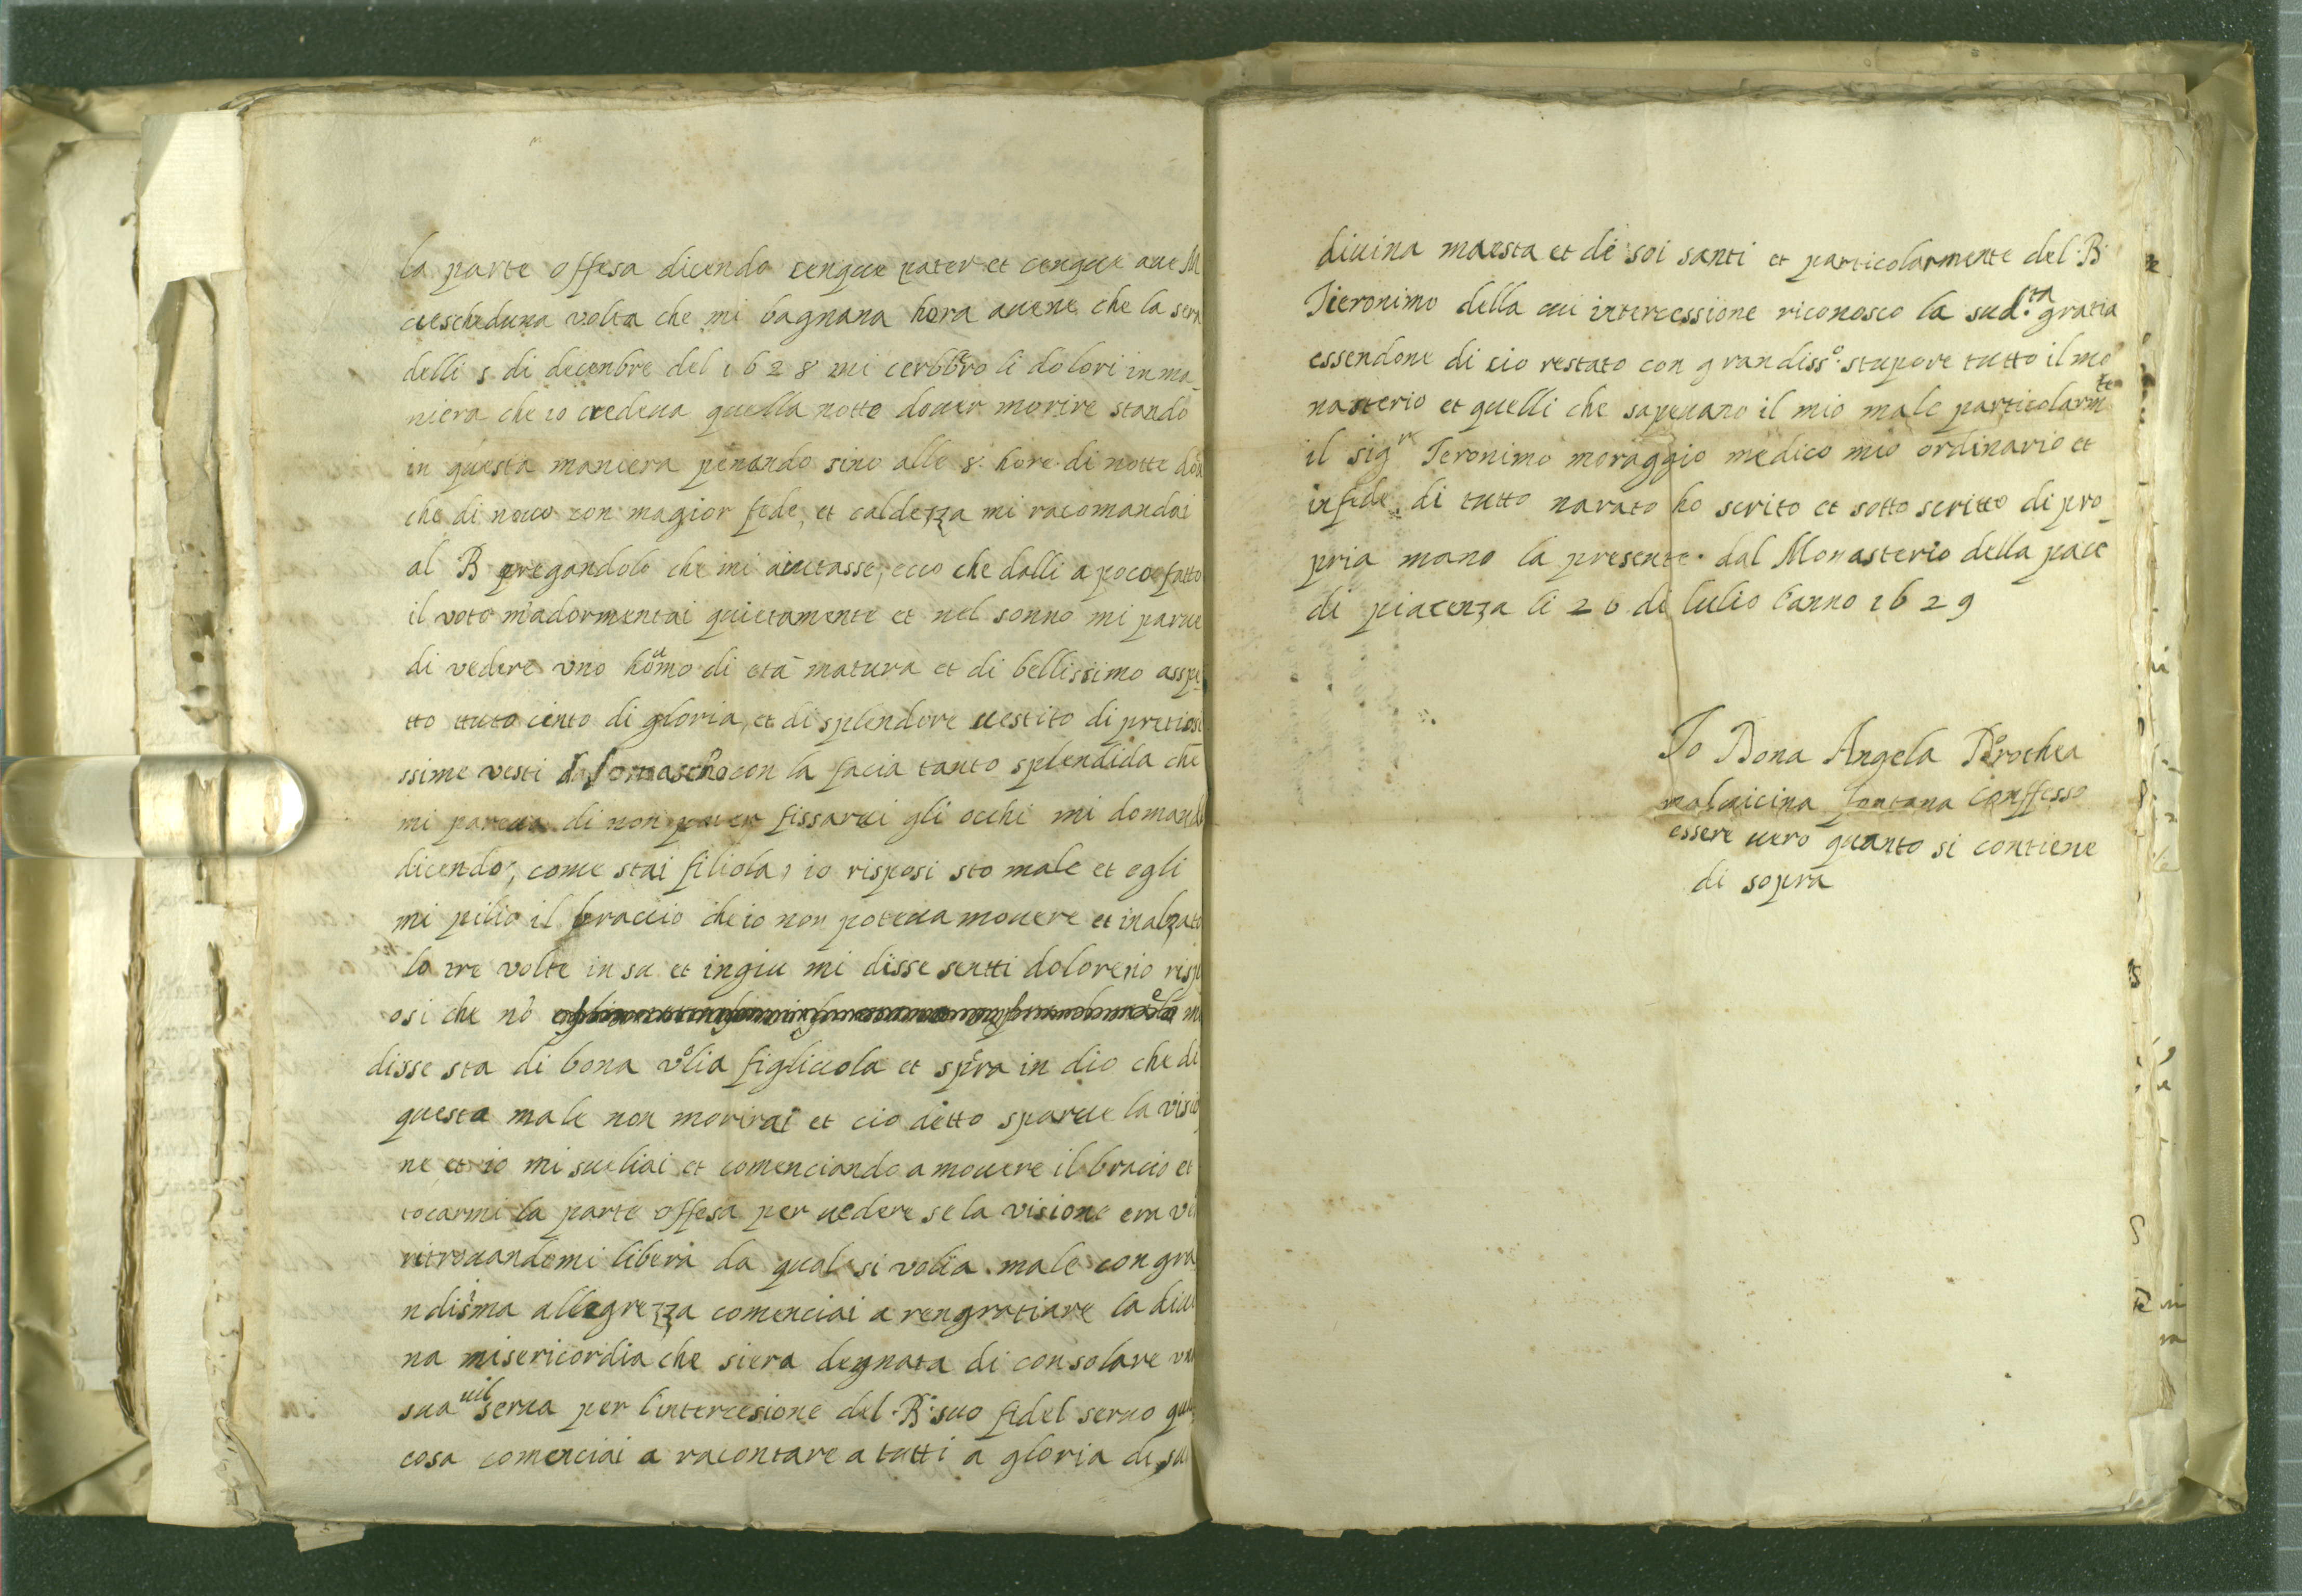 la parte offesa dicendo cenque pater et cenque aue M
ciescheduna volta che mi bagnana hora auene che la sera
delli 5 di decenbre del 1628 mi cerbbro li dolori in ma
niera che io credeua quella notte douer morire stando
in questa maniera penando sino alle 8 hore di notte
che di nouo con magior fede, et caldezza mi racomandai
al B pregandolo che mi aiutasse, ecco che dalli a poco fatto
il voto m'adormentai quietamente et nel sonno mi parue
di vedere uno homo di età matura et di bellissimo asspe
tto tuto cinto di gloria, et di splendore uestito di pretiosi
ssime vesti da somascho con la facia tanto splendida che
mi pareua di non poter fissarui gli occhi mi domand
dicendo, come stai filiola, io risposi sto male et egli
mi pilio il braccio che io non poteua mouere et inalzato
lo tre volte in su et ingiu mi disse sentti dolore, io risp
osi che nò mi
disse sta di bona volia figliuola et spera in dio che di
questa male non morirai et cio detto sparue la visio
ne et io mi sueliai et comenciando a mouere il bracio et
tocarmi la parte offesa per uedere se la visione era ve
ritrouandomi libera da qual si volia male con gra
ndisima allegrezza comenciai a rengratiare la diui
na misericordia che siera degnata di consolare una
sua uil serua per l'intercesione del B. suo fidel seruo qual
cosa comenciai a racontare a tutti a gloria di sua
diuina maesta et de soi santi et particolarmente del B.
Jieronimo della cui intercessione riconosco la sud.ta gratia
essendone di cio restato con grandiss.o stupore tutto il mo
nasterio et quelli che sapeuano il mio male particolarm.te
il sig.re Jeronimo moraggio medico mio ordinario et
in fede di tutto narato ho scrito et sotto scritto di pro
pria mano la presente. dal Monasterio della pace
di piacenza li 26 di lulio l'anno 1629
Jo Dona Angela Dorothea
maluicina fontana conffesso
essere uero quanto si contiene
di sopra